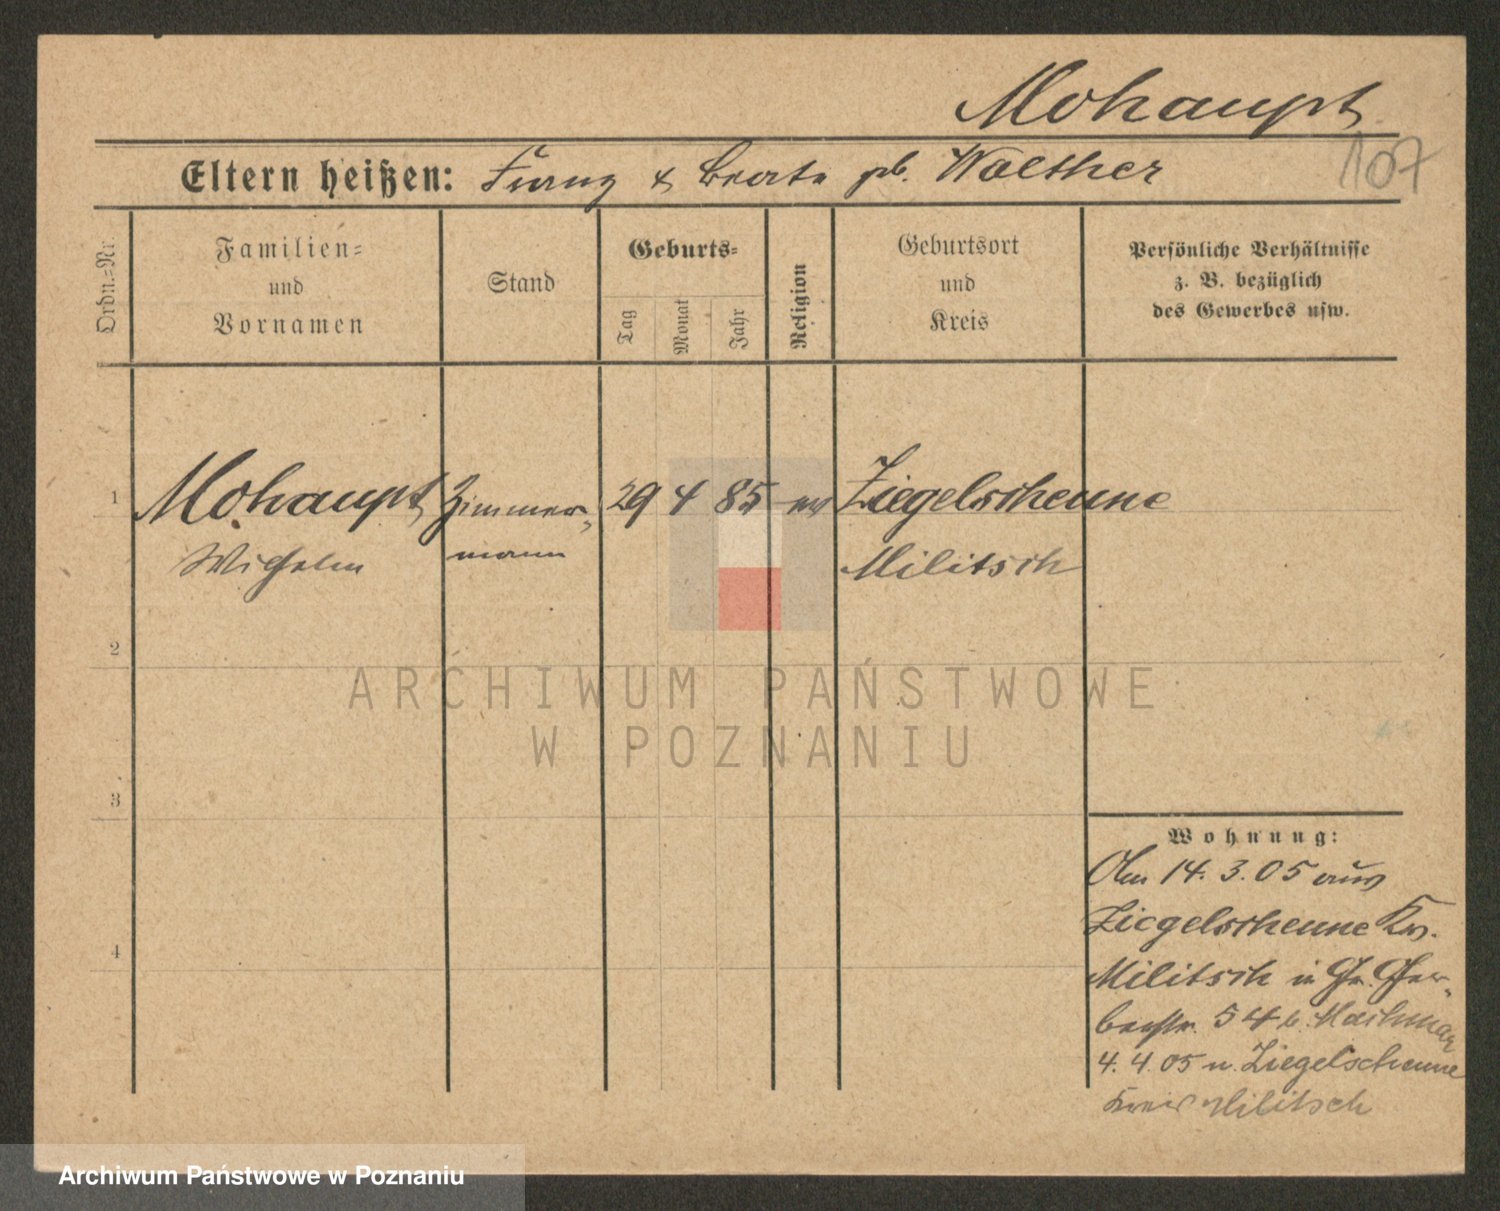 Mohaupt
107
Eltern heißen: Franz & Beate geb. Walther
Ordn.-Nr.
Familien-
und
Vornamen
Stand
Geburts-
Tag
Monat
Jahr
Religion
Geburtsort
und
Kreis
Persönliche Verhältnisse
z. B. bezüglich
des Gewerbes usw.
1
Mohaupt Zimmer- 29 4 85 ev Ziegelscheune
Wilhelm mann Militsch
2
ARCHIWUM PAŃSTWOWE
W POZNANIU
3
Wohnung:
Am 14. 3. 05 aus
Ziegelscheune Krs.
4
Militsch in Gr. Ger-
berstr. 54 b.
4. 4. 05 n. Ziegelscheune
Kreis Militsch
Archiwum Państwowe w Poznaniu